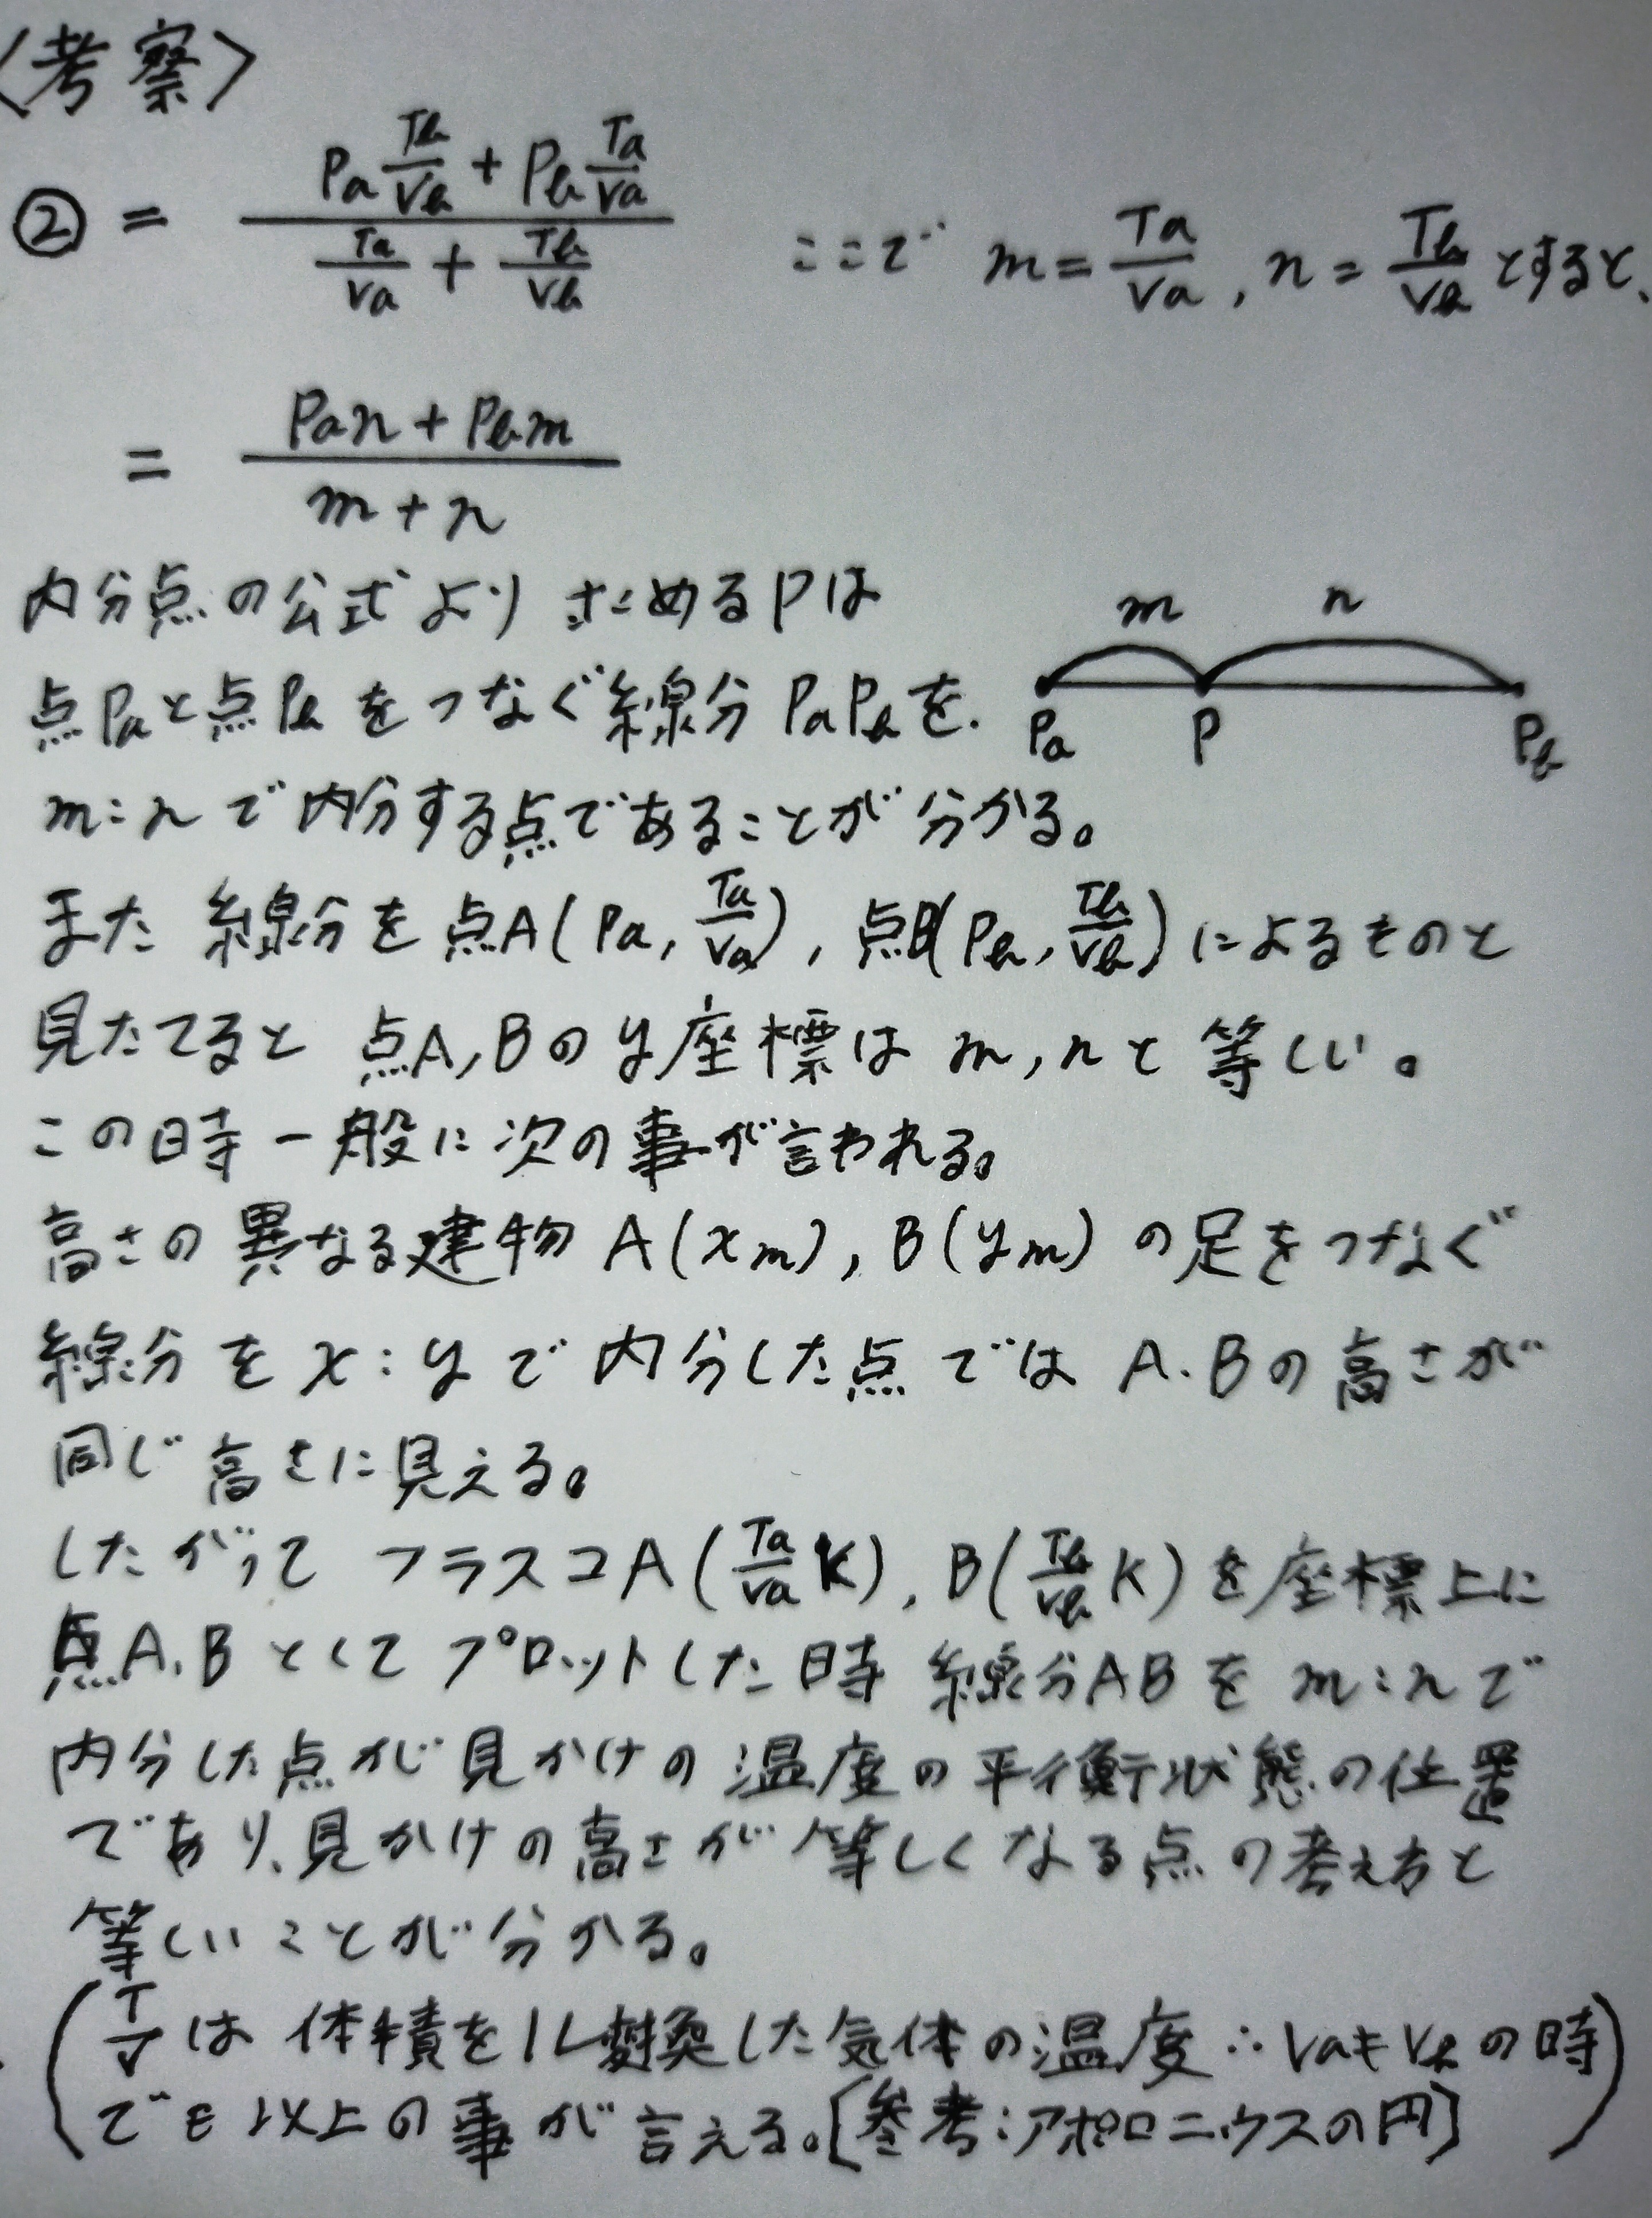 〈考察〉
② = (Pa Tb/Vb + Pb Ta/Va) / (Ta/Va + Tb/Vb) ここで m = Ta/Va , n = Tb/Vb とすると、
= (Pan + Pbm) / (m + n)
内分点の公式より 求めるPは
m n
点Paと点Pbをつなぐ線分PaPbを.
Pa P Pb
m:nで内分する点であることが分かる。
また 線分を点A(Pa, Ta/Va), 点B(Pb, Tb/Vb)によるものと
見たてると 点A,Bのy座標はm,nと等しい。
この時一般に次の事が言われる。
高さの異なる建物A(xm), B(ym)の足をつなぐ
線分をx:yで内分した点ではA.Bの高さが
同じ高さに見える。
したがって フラスコA(Ta/Va K), B(Tb/Vb K)を座標上に
点A.Bとしてプロットした時 線分ABをm:nで
内分した点が見かけの温度の平衡状態の位置
であり、見かけの高さが等しくなる点の考え方と
等しいことが分かる。
(T/Vは体積を1L変換した気体の温度 ∴Va≠Vbの時
でも以上の事が言える。[参考:アポロニウスの円])